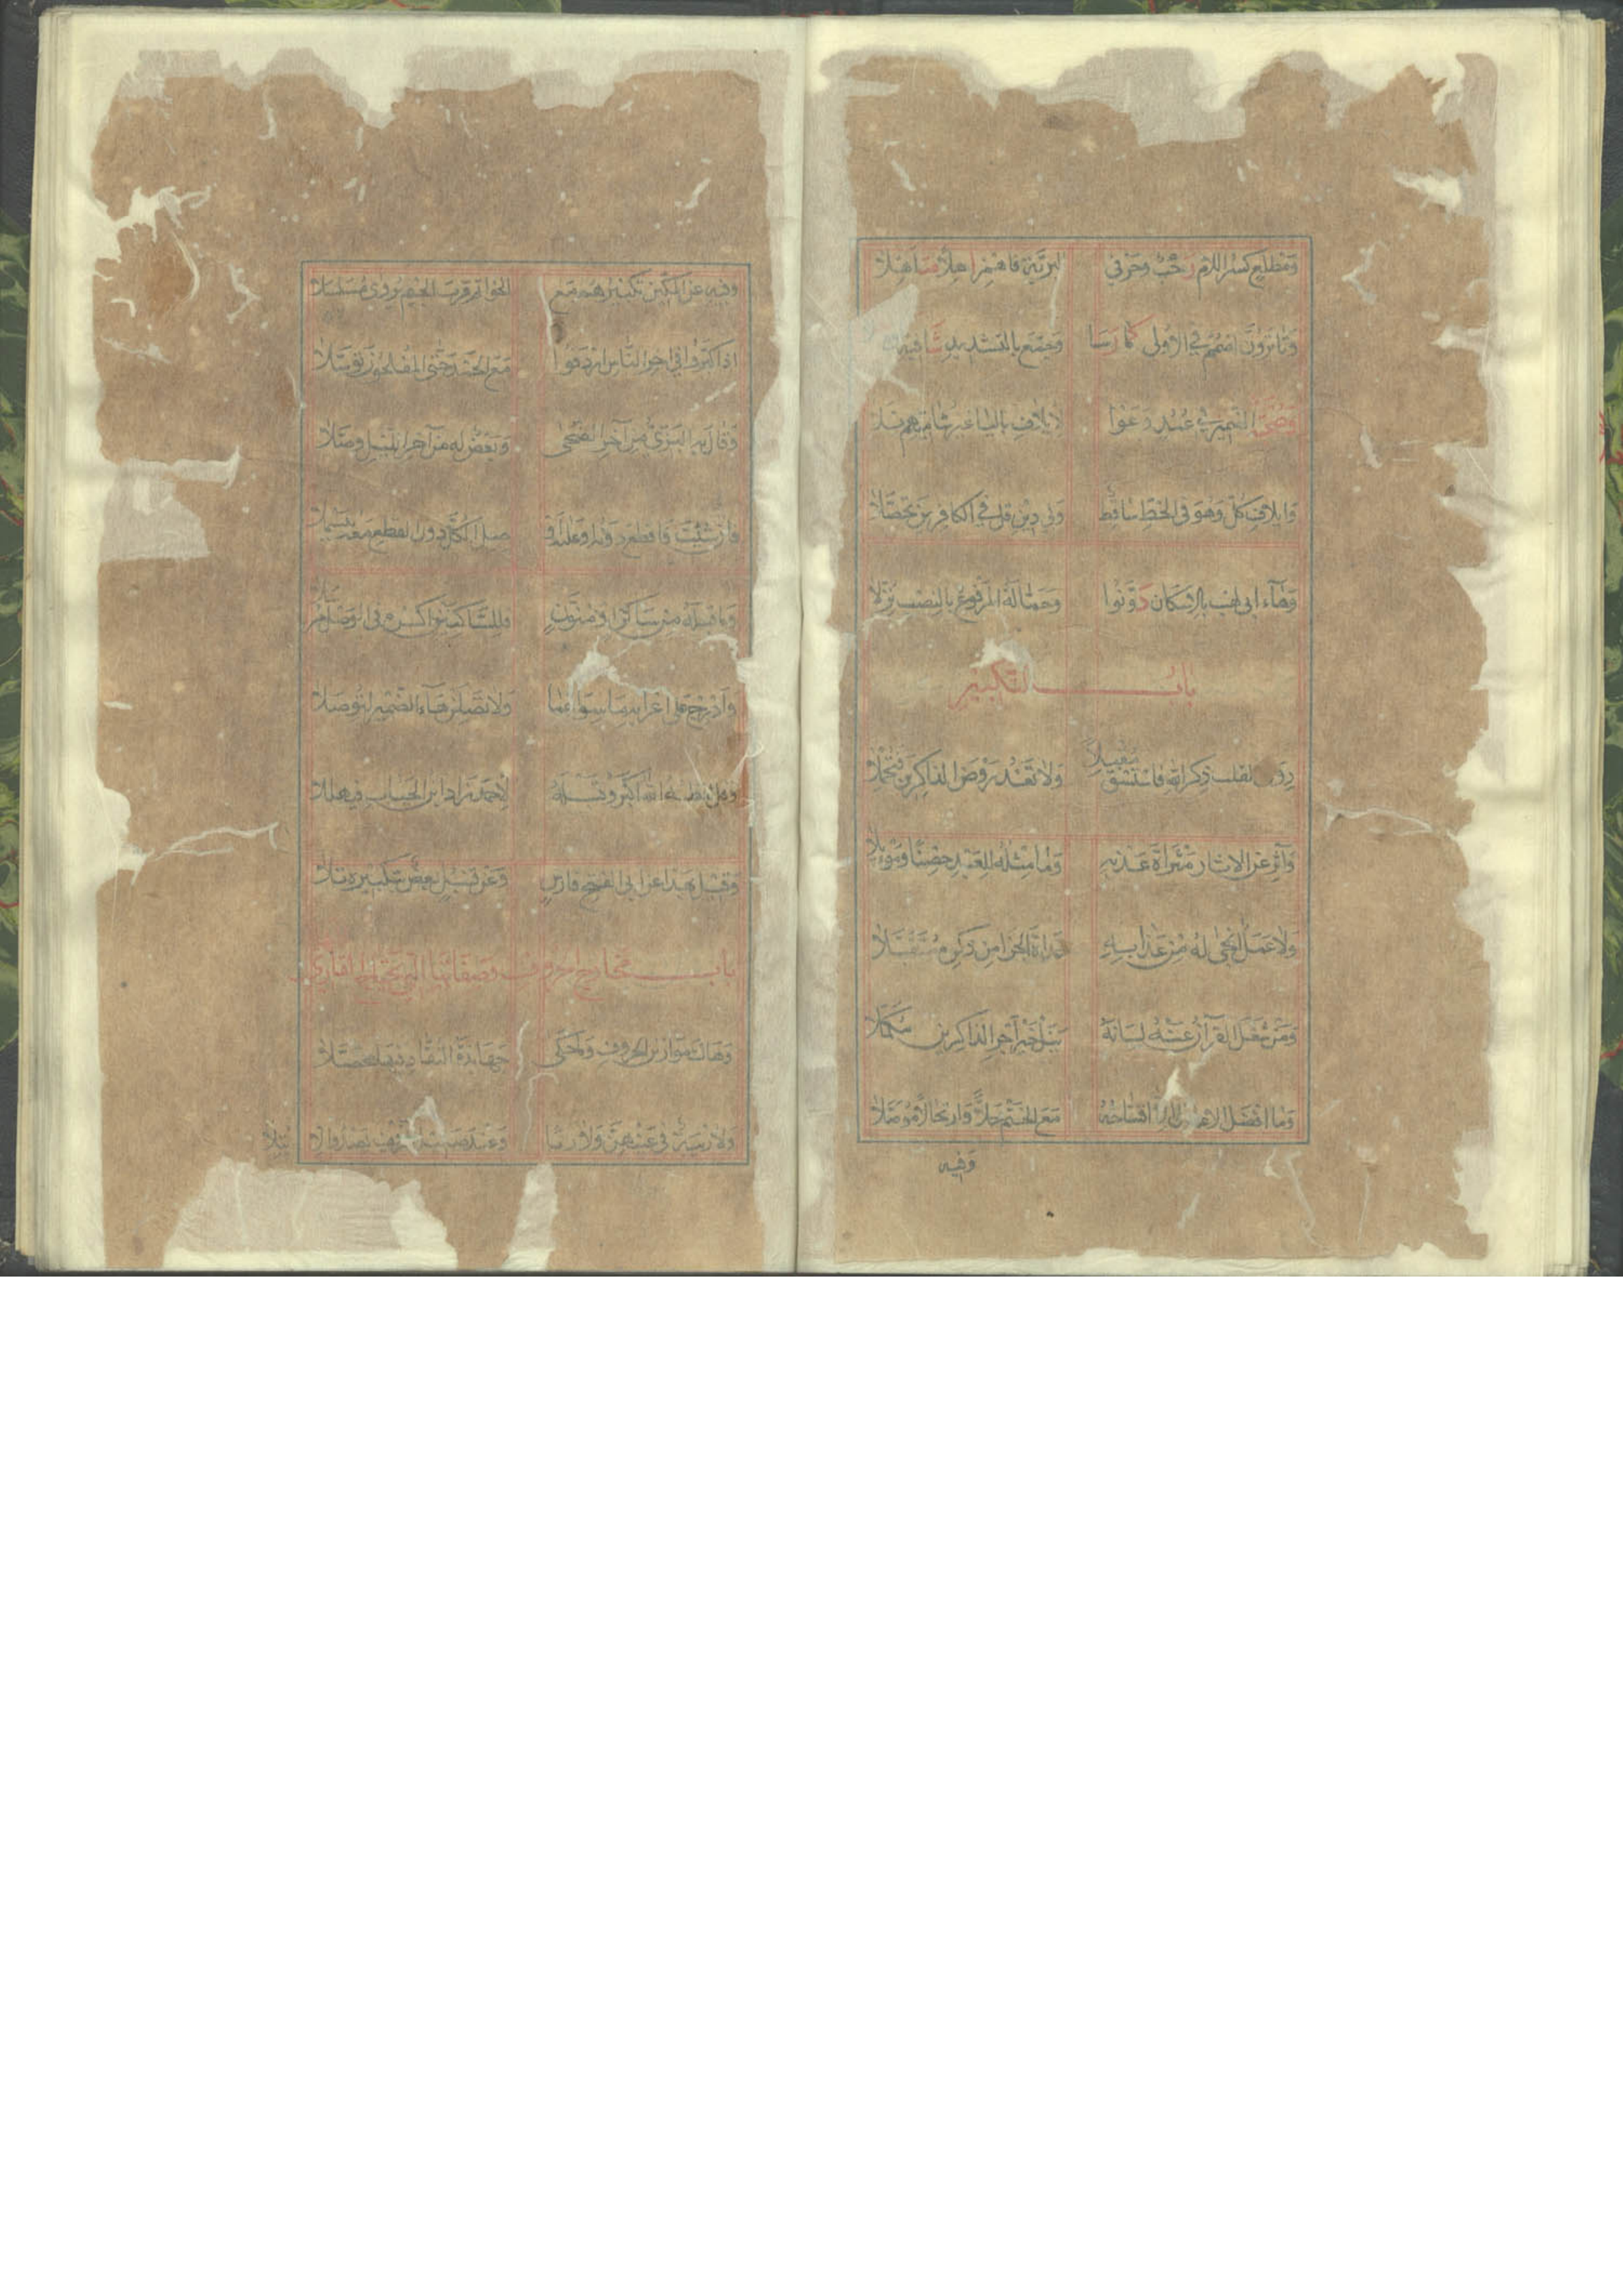 وَمَطْلَعِ كَسْرُ اللَّامِ رَحْبٌ وَحَرْفَيِ الْبَرِيَّةِ فَاهْمِزْ آهِلاً مُتَأَهِّلَا
وَتَا تَرَوُنَّ اضْمُمْ فِي الْأُولَى كَمَا رَسَا وَجَمَّعَ بِالتَّشْدِيدِ شَافِيهِ
وَصُحْبَةٌ الضَّمَّيْنِ فِي عَمَدٍ وَعَوْا لِإِيلَافِ بِالْيَا غَيْرُ شَامِيِّهِمْ تَلَا
وَإِيلَافِ كُلٌّ وَهُوَ فِي الْخَطِّ سَاقِطٌ وَلِي دِينِ قُلْ فِي الْكَافِرِينَ تَحَصَّلَا
وَهَاءَ أَبِي لَهْبٍ بِالْإِسْكَانِ دَوَّنُوا وَحَمَّالَةُ الْمَرْفُوعُ بِالنَّصْبِ نُزِّلَا
بَابُ التَّكْبِيرِ
رِوَى الْقَلْبِ ذِكْرُ اللهِ فَاسْتَسْقِ مُقْبِلاً وَلَا تَعْدُ رَوْضَ الذَّاكِرِينَ فَتُمْحِلَا
وَآثِرْ عَنِ الْآثَارِ مَثْرَاةَ عَذْبِهِ وَمَا مِثْلُهُ لِلْعَبْدِ حِصْناً وَمَوْئِلَا
وَلَا عَمَلٌ أَنْجَى لَهُ مِنْ عَذَابِهِ غَدَاةَ الْجَزَا مِنْ ذِكْرِهِ مُتَقَبَّلَا
وَمَنْ شَغَلَ الْقُرْآنُ عَنْهُ لِسَانَهُ يَنَلْ خَيْرَ أَجْرِ الذَّاكِرِينَ مُكَمَّلَا
وَمَا أَفْضَلُ الْأَعْمَالِ إِلَّا افْتِتَاحُهُ مَعَ الْخَتْمِ حِلًّا وَارْتِحَالًا مُوَصَّلَا
وَفِيهِ
وَفِيهِ عَنِ الْمَكِّينَ تَكْبِيرُهُمْ مَعَ الْخَوَاتِمِ قُرْبَ الْخَتْمِ يُرْوَى مُسَلْسَلَا
إِذَا كَبَّرُوا فِي آخِرِ النَّاسِ أَرْدَفُوا مَعَ الْحَمْدِ حَتَّى الْمُفْلِحُونَ تَوَسُّلَا
وَقَالَ بِهِ الْبَزِّيُّ مِنْ آخِرِ الضُّحَى وَبَعْضٌ لَهُ مِنْ آخِرِ اللَّيْلِ وَصَّلَا
فَإِنْ شِئْتَ فَاقْطَعْ دُونَهُ أَوْ عَلَيْهِ أَوْ صِلِ الْكُلَّ دُونَ الْقَطْعِ مَعْهُ مُبَسْمِلَا
وَمَا قَبْلَهُ مِنْ سَاكِنٍ أَوْ مُنَوَّنٍ فَلِلسَّاكِنَيْنِ اكْسِرْهُ فِي الْوَصْلِ مُرْسَلَا
وَأَدْرِجْ عَلَى إِعْرَابِهِ مَا سِوَاهُمَا وَلَا تَصِلَنْ هَاءَ الضَّمِيرِ لِتُوصَلَا
وَقُلْ لَفْظُهُ اللهُ أَكْبَرْ وَقَبْلَهُ لِأَحْمَدَ زَادَ ابْنُ الْحُبَابِ فَهَيْلَلَا
وَقِيلَ بِهَذَا عَنْ أَبِي الْفَتْحِ فَارِسٍ وَعَنْ قُنْبُلٍ بَعْضٌ بِتَكْبِيرِهِ تَلَا
بَابُ مَخَارِجِ الْحُرُوفِ وَصِفَاتِهَا الَّتِي يَحْتَاجُ الْقَارِئُ
وَهَاكَ مَوَازِينَ الْحُرُوفِ وَمَا حَكَى جَهَابِذَةُ النُّقَّادِ فِيهَا مُحَصَّلَا
وَلَا رِيبَةٌ فِي عَيْنِهِنَّ وَلَا رِبَا وَعِنْدَ صَلِيلِ الزَّيْفِ يَصْدُقُ الِابْتِلَا